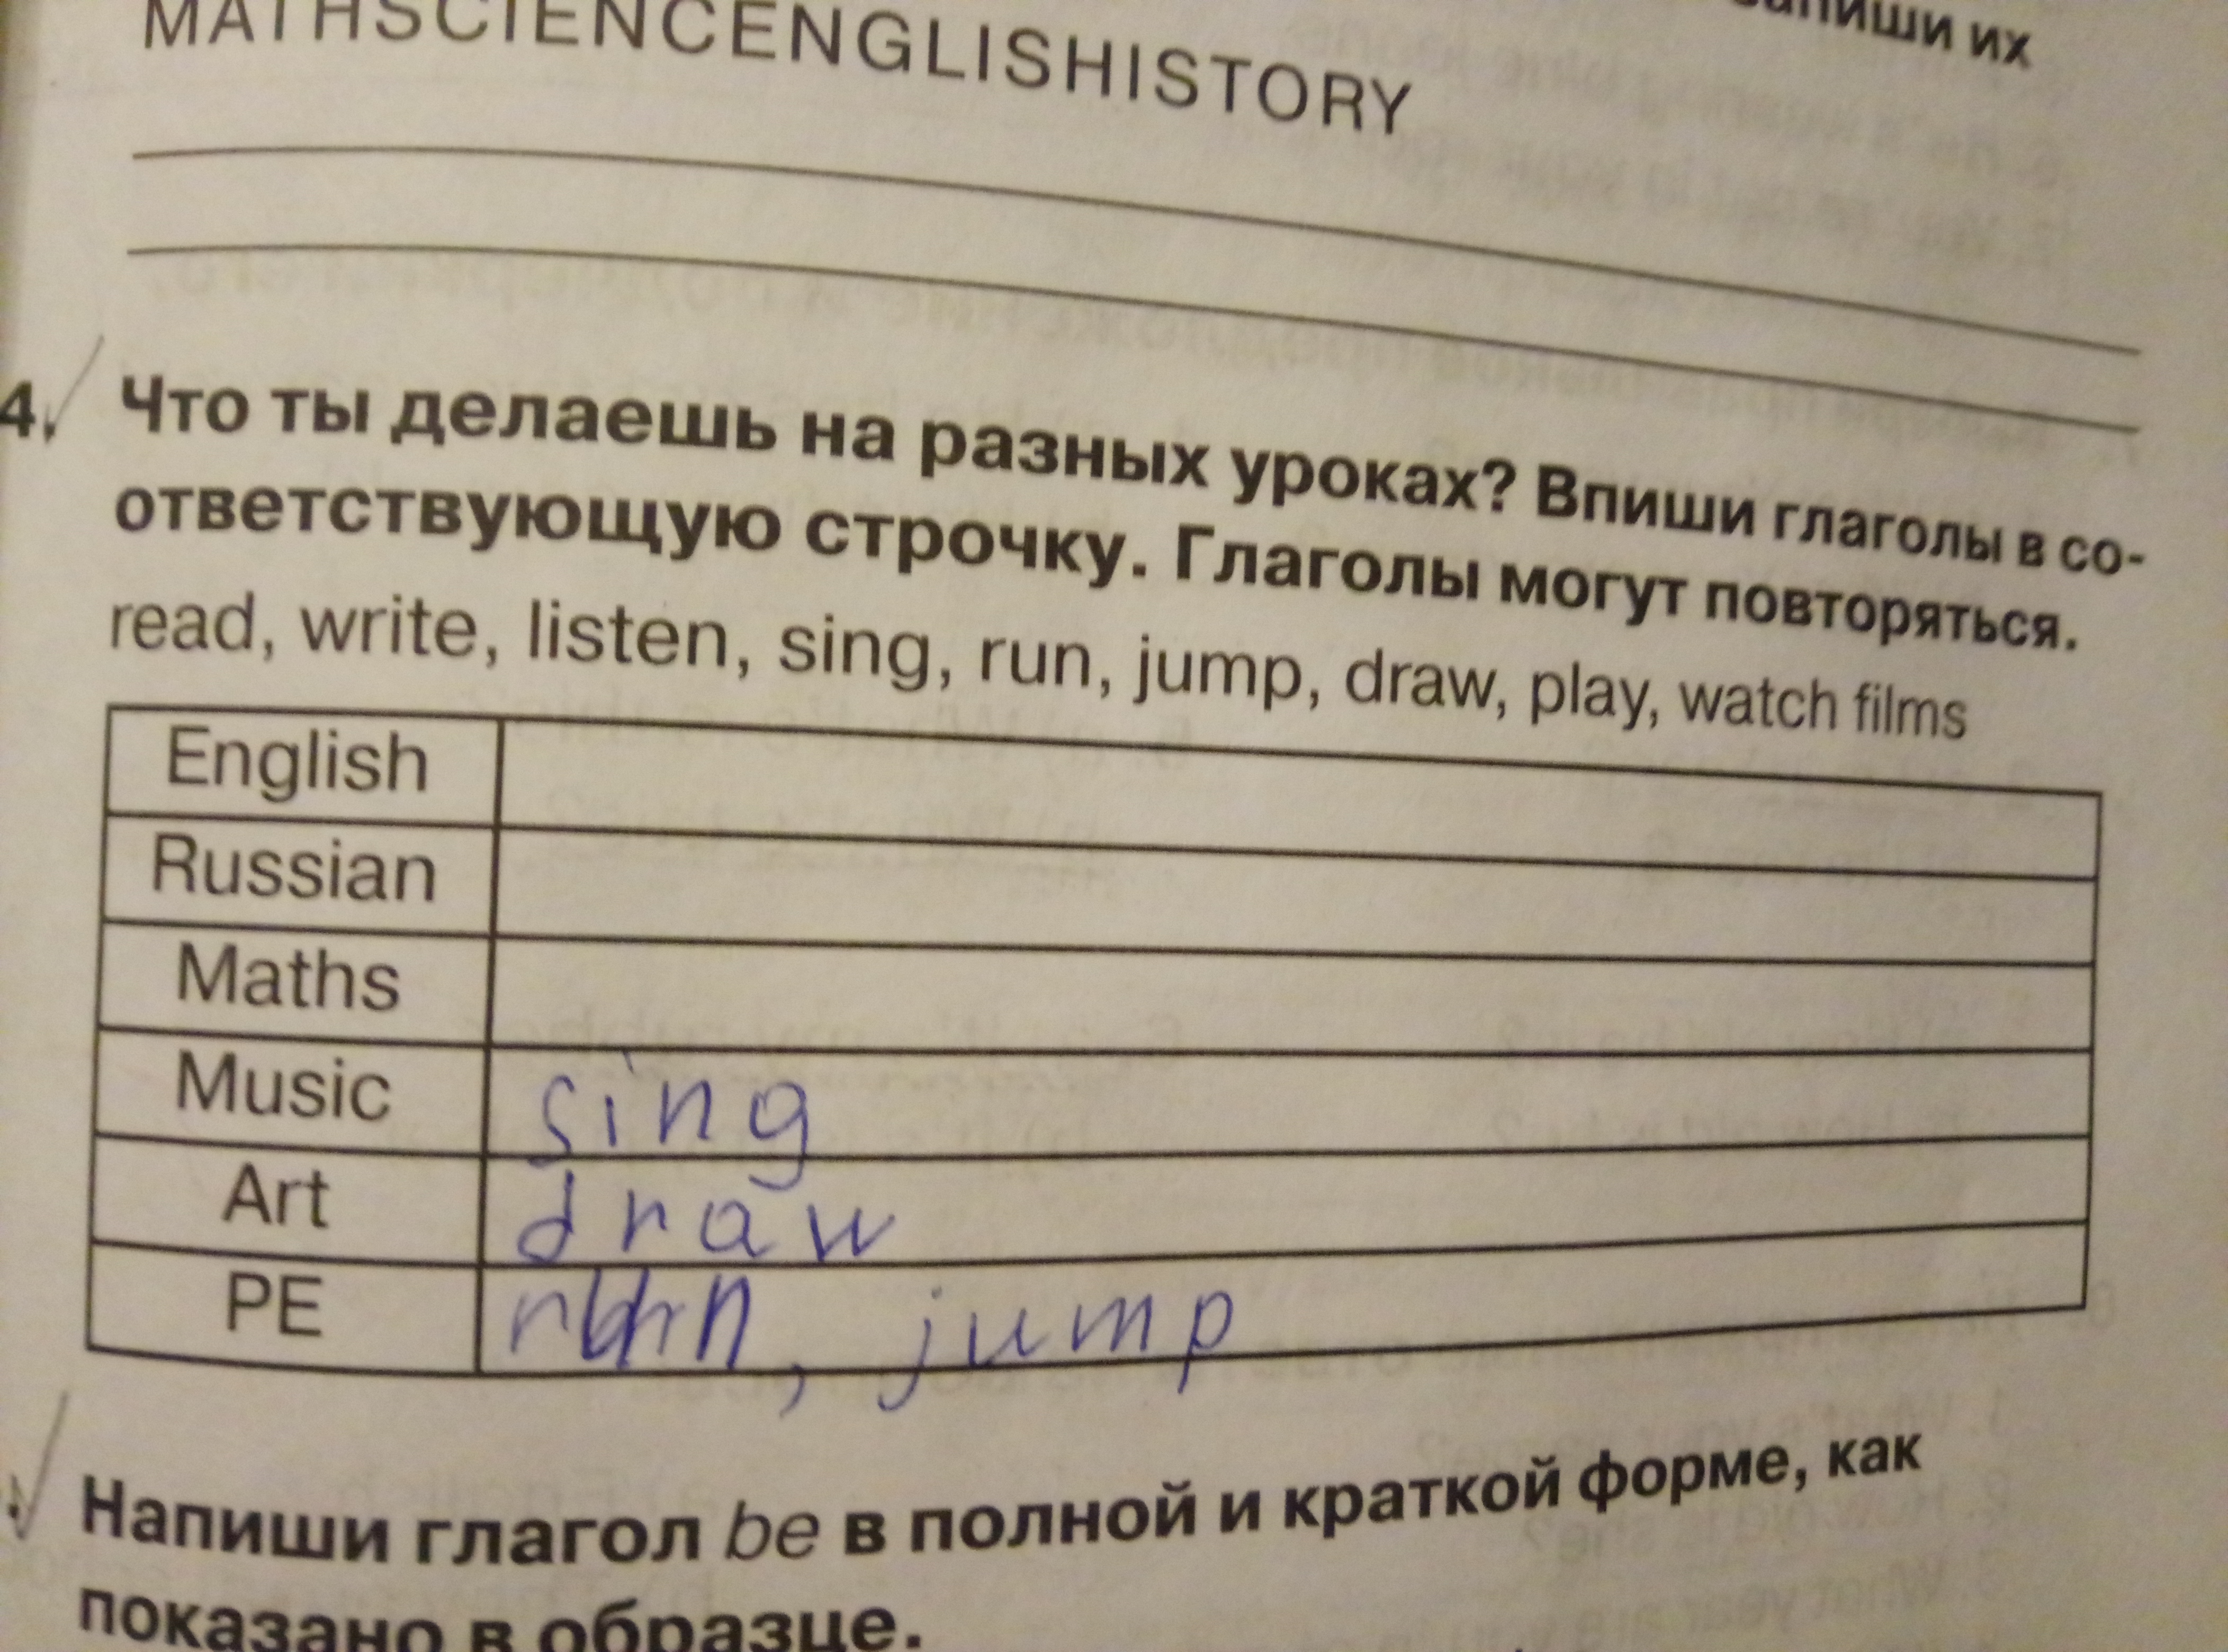 запиши их
MATHSCIENCENGLISHISTORY
4. Что ты делаешь на разных уроках? Впиши глаголы в со-
ответствующую строчку. Глаголы могут повторяться.
read, write, listen, sing, run, jump, draw, play, watch films
English
Russian
Maths
Music sing
Art draw
PE run, jump
Напиши глагол be в полной и краткой форме, как
показано в образце.